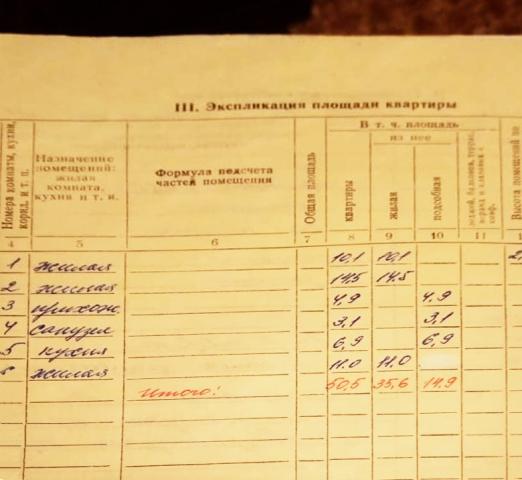 III. Экспликация площади квартиры
Номера комнаты, кухни, корид. и т. п.
Назначение помещений: жилая комната, кухня и т. п.
Формула подсчета частей помещения
Общая площадь
В т. ч. площадь
из нее
квартиры
жилая
подсобная
Высота помещений по
4 5 6 7 8 9 10 11
1 жилая 10,1 10,1 2,
2 жилая 14,5 14,5
3 прихож. 4,9 4,9
4 санузел 3,1 3,1
5 кухня 6,9 6,9
6 жилая 11.0 11.0
Итого: 50,5 35,6 14.9